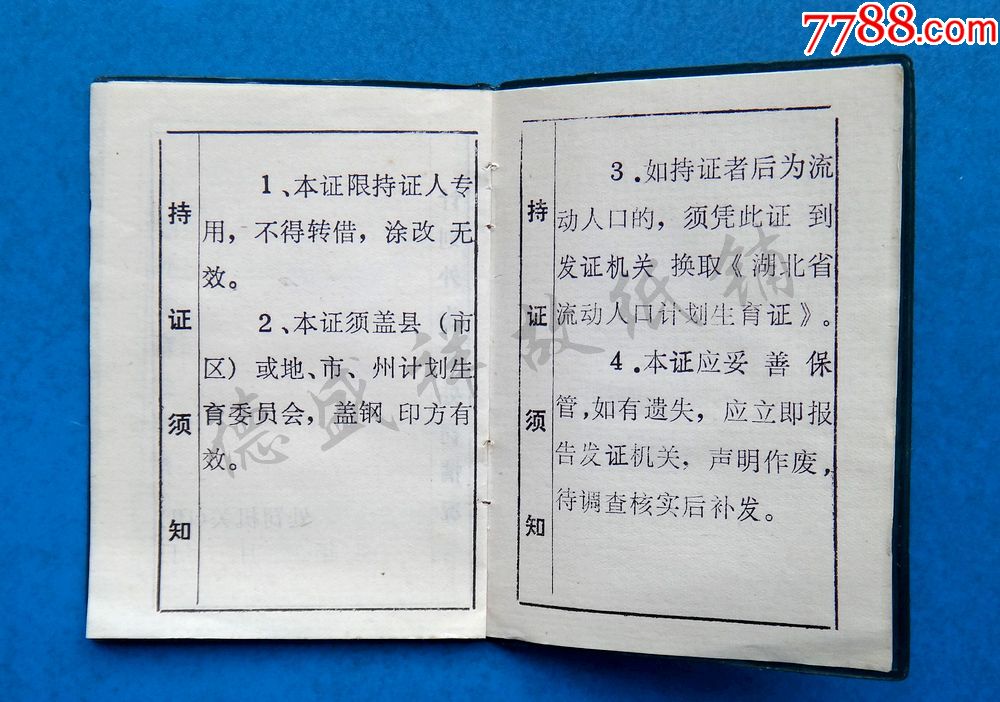 7788.com
持证须知
1、本证限持证人专
用，不得转借，涂改 无
效。
2、本证须盖县（市
区）或地、市、州计划生
育委员会，盖钢 印方有
效。
持证须知
3．如持证者后为流
动人口的，须凭此证 到
发证机关 换取《湖北省
流动人口计划生育证》。
4．本证应妥 善 保
管，如有遗失，应立即报
告发证机关，声明作废，
待调查核实后补发。
德盛祥故纸铺